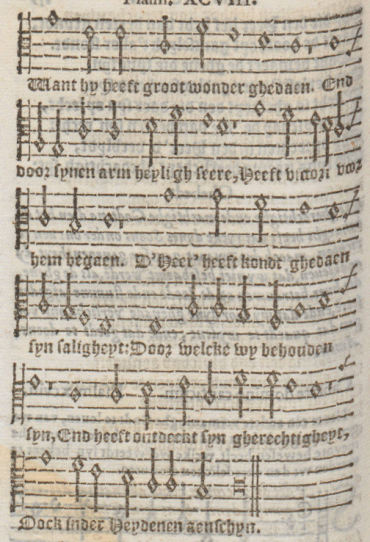 Psalm. XCVIII.
Want hy heeft groot wonder ghedaen. End
door synen arm heyligh seere, Heeft victori voor
hem begaen. D'Heer' heeft kondt ghedaen
syn saligheyt: Door welcke wy behouden
syn, End heeft ontdeckt syn gherechtigheyt,
Oock inder Heydenen aenschyn.